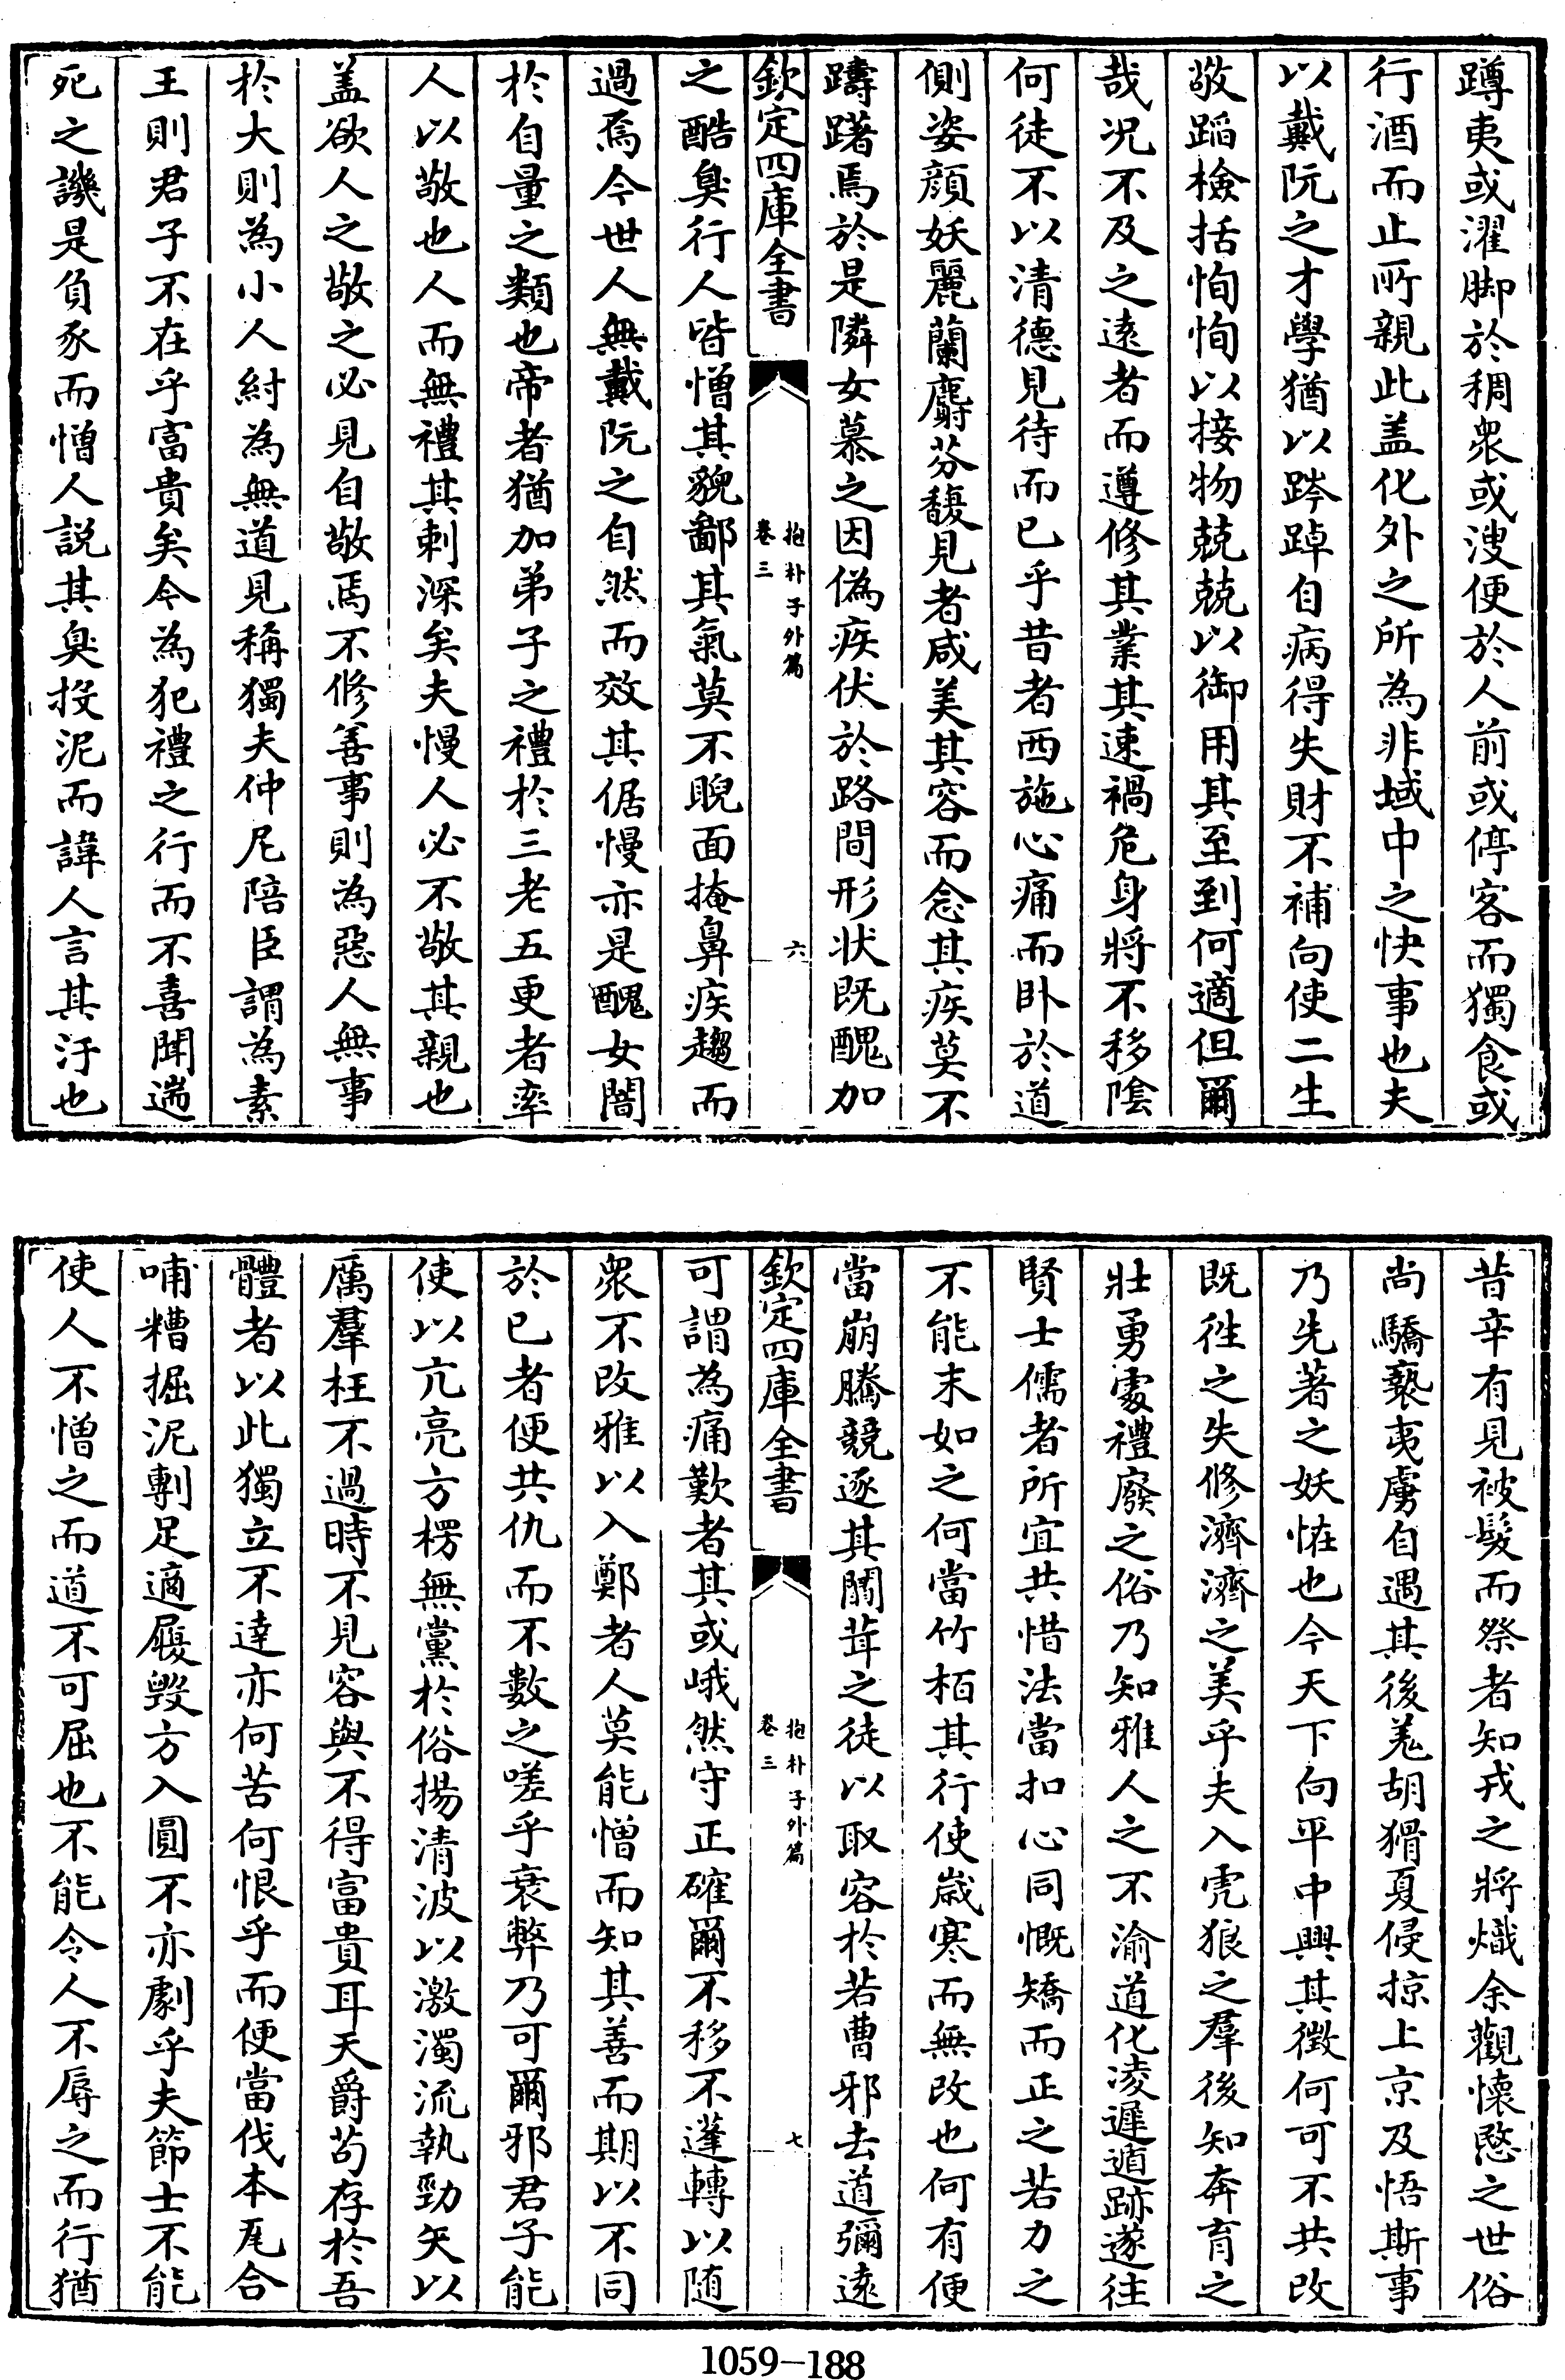 蹲夷或濯脚於稠衆或溲便於人前或停客而獨食或
行酒而止所親此盖化外之所為非域中之快事也夫
以戴阮之才學猶以跨踔自病得失財不補向使二生
敬蹈檢括恂恂以接物兢兢以御用其至到何適但爾
哉况不及之逺者而遵修其業其速禍危身將不移隂
何徒不以清德見待而已乎昔者西施心痛而卧於道
側姿顔妖麗蘭麝芬馥見者咸美其容而念其疾莫不
躊躇焉於是隣女慕之因偽疾伏於路間形状既醜加
欽定四庫全書
抱朴子外篇
卷三
六
之酷臭行人皆憎其貌鄙其氣莫不睨面掩鼻疾趨而
過焉今世人無戴阮之自然而效其倨慢亦是醜女闇
於自量之類也帝者猶加弟子之禮於三老五更者率
人以敬也人而無禮其刺深矣夫慢人必不敬其親也
盖欲人之敬之必見自敬焉不修善事則為惡人無事
於大則為小人紂為無道見稱獨夫仲尼陪臣謂為素
王則君子不在乎富貴矣今為犯禮之行而不喜聞遄
死之譏是負豕而憎人説其臭投泥而諱人言其汙也
昔辛有見被髮而祭者知戎之將熾余觀懷愍之世俗
尚驕褻夷虜自遇其後羌胡猾夏侵掠上京及悟斯事
乃先著之妖恠也今天下向平中興其徴何可不共改
既徃之失修濟濟之美乎夫入虎狼之羣後知奔育之
壯勇處禮廢之俗乃知雅人之不渝道化凌遲遁跡遂往
賢士儒者所宜共惜法當扣心同慨矯而正之若力之
不能末如之何當竹栢其行使歳寒而無改也何有便
當崩騰競逐其闒茸之徒以取容於若曹邪去道彌逺
欽定四庫全書
抱朴子外篇
卷三
七
可謂為痛歎者其或峨然守正確爾不移不蓬轉以随
衆不改雅以入鄭者人莫能憎而知其善而期以不同
於已者便共仇而不數之嗟乎衰弊乃可爾邪君子能
使以亢亮方楞無黨於俗揚清波以激濁流執勁矢以
厲羣枉不過時不見容與不得富貴耳天爵苟存於吾
體者以此獨立不達亦何苦何恨乎而便當伐本尾合
哺糟掘泥剸足適屨毁方入圓不亦劇乎夫節士不能
使人不憎之而道不可屈也不能令人不辱之而行猶
1059-188